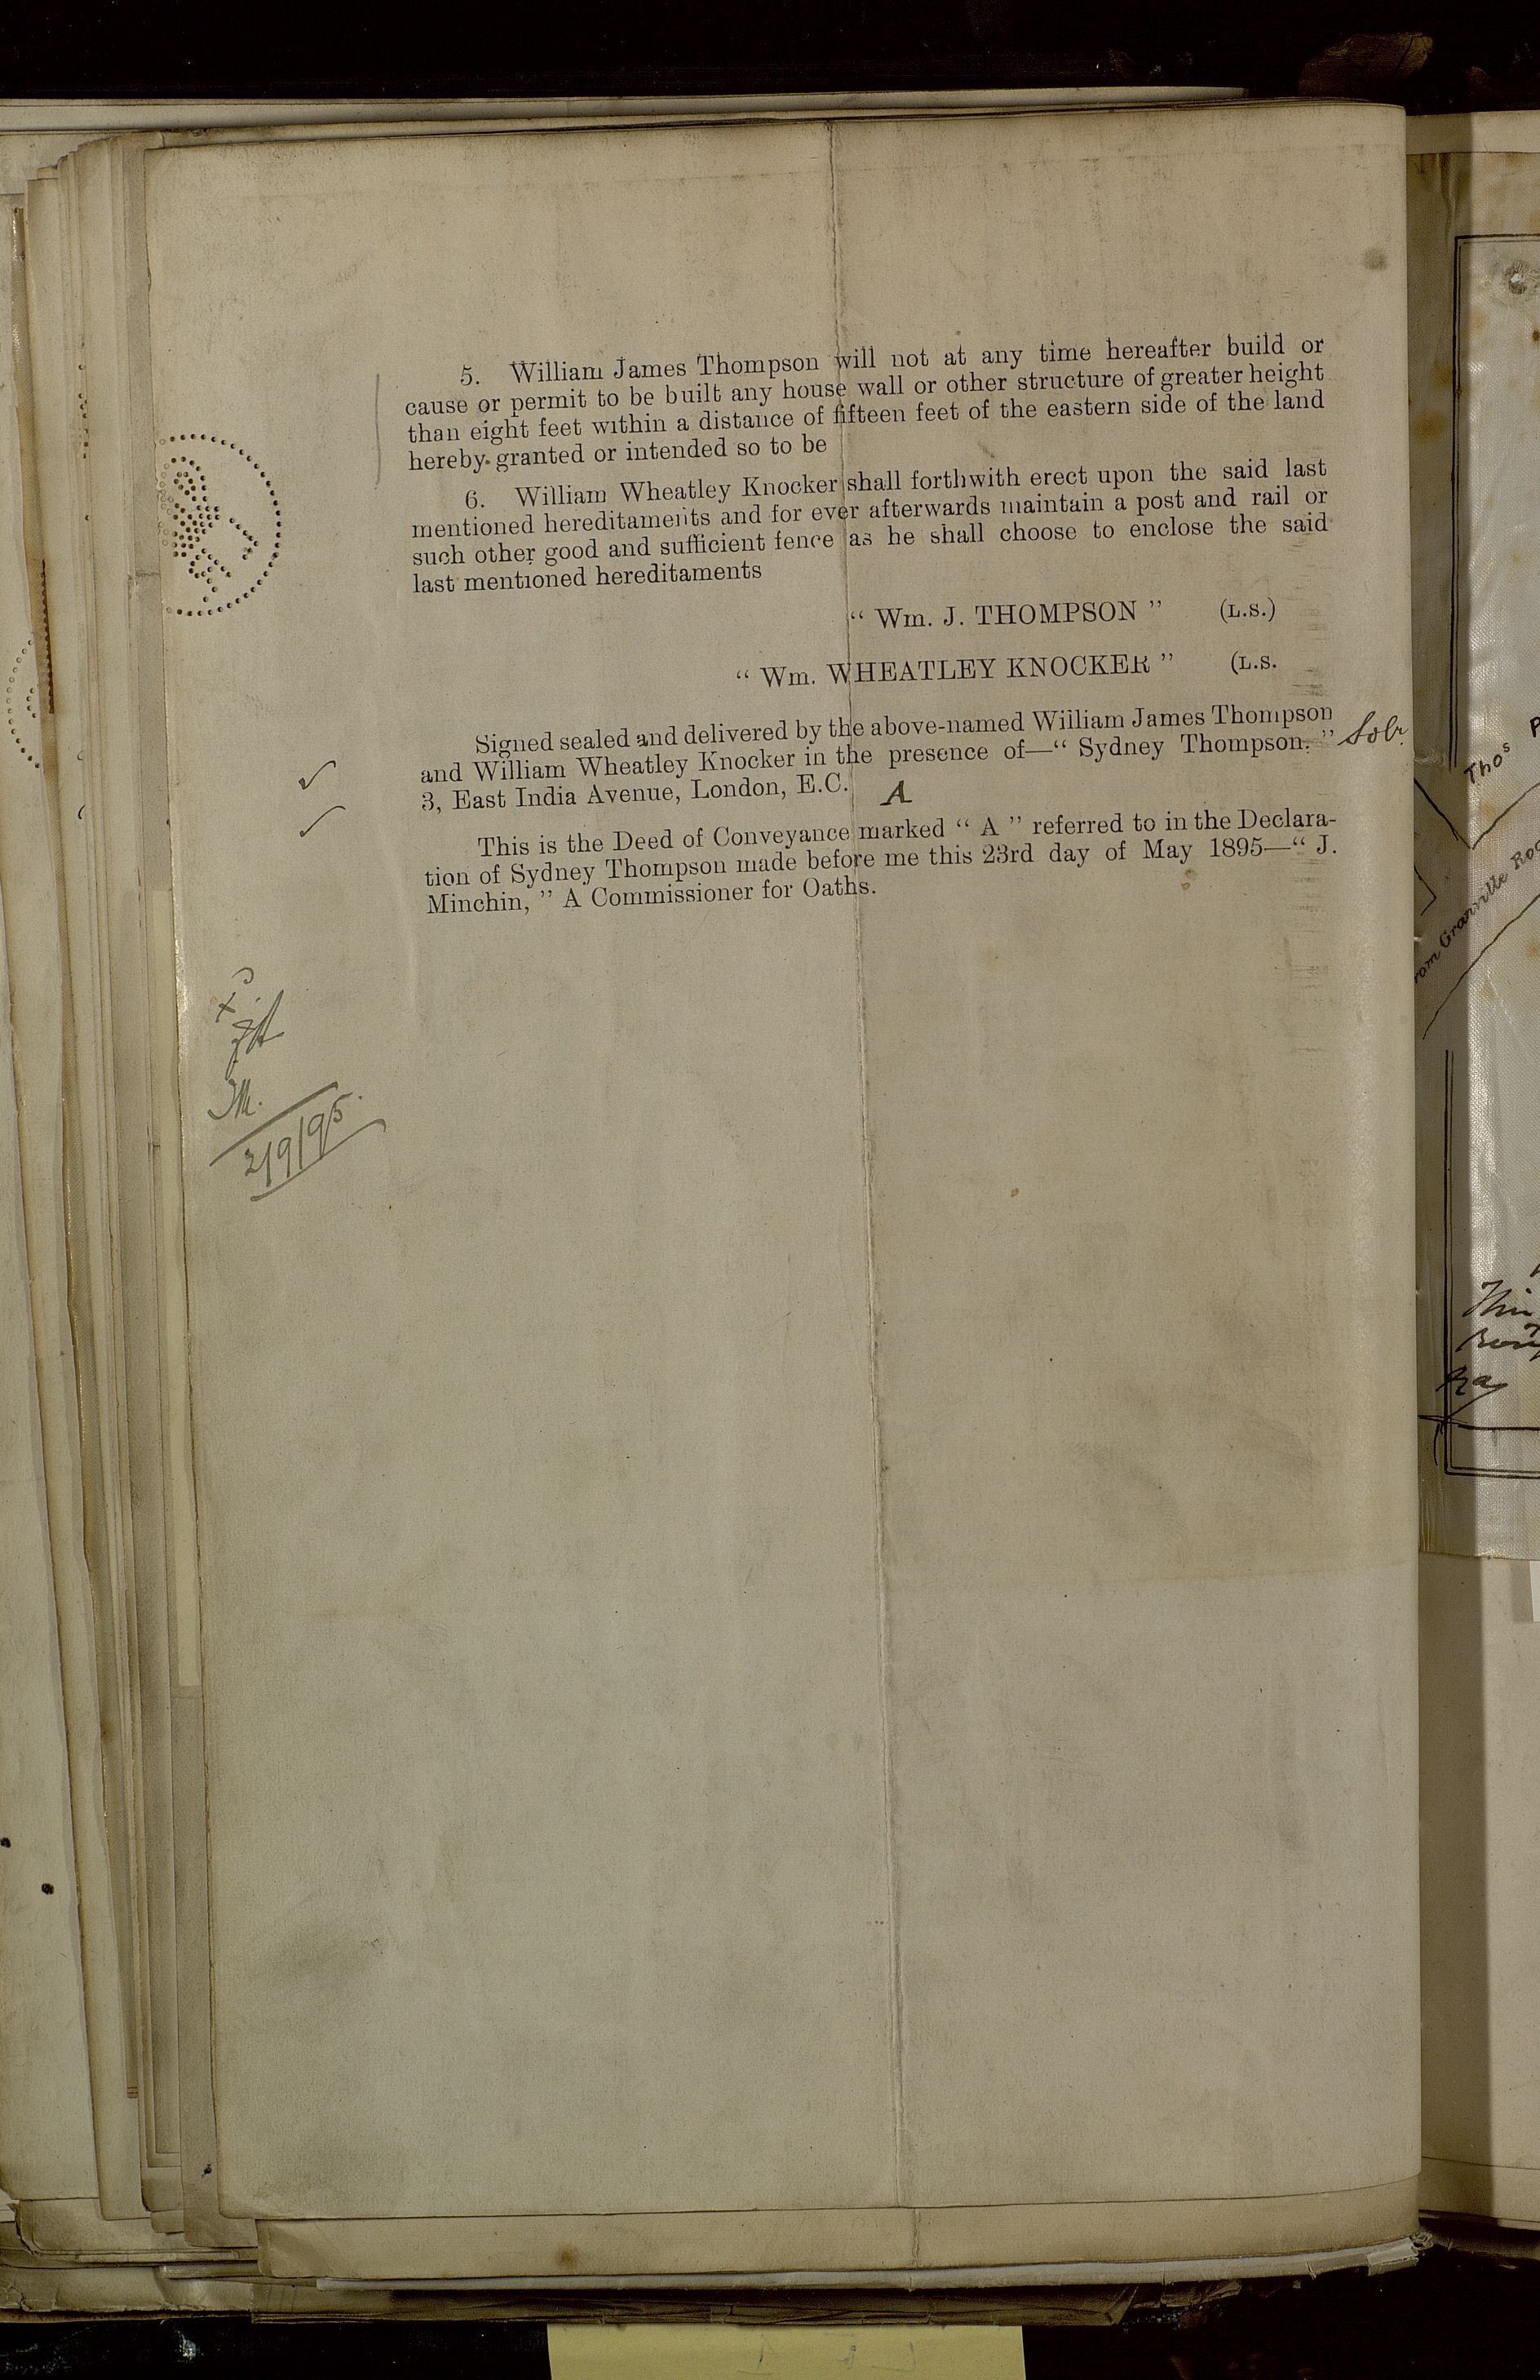 5. William James Thompson will not at any time hereafter build or
cause or permit to be built any house wall or other structure of greater height
than eight feet within a distance of fifteen feet of the eastern side of the land
hereby granted or intended so to be
6. William Wheatley Knocker shall forthwith erect upon the said last
mentioned hereditaments and for ever afterwards maintain a post and rail or
such other good and sufficient fence as he shall choose to enclose the said
last mentioned hereditaments
“ Wm. J. THOMPSON ” (L.S.)
“ Wm. WHEATLEY KNOCKER ” (L.S.
Signed sealed and delivered by the above-named William James Thompson
and William Wheatley Knocker in the presence of—“ Sydney Thompson. ” Solr.
3, East India Avenue, London, E.C. A
This is the Deed of Conveyance marked “ A ” referred to in the Declara-
tion of Sydney Thompson made before me this 23rd day of May 1895—“ J.
Minchin, ” A Commissioner for Oaths.
2/9/95.
Thos
Granville